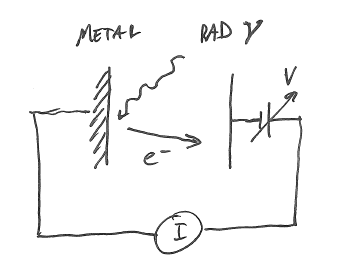 METAL
RAD γ
V
e-
I